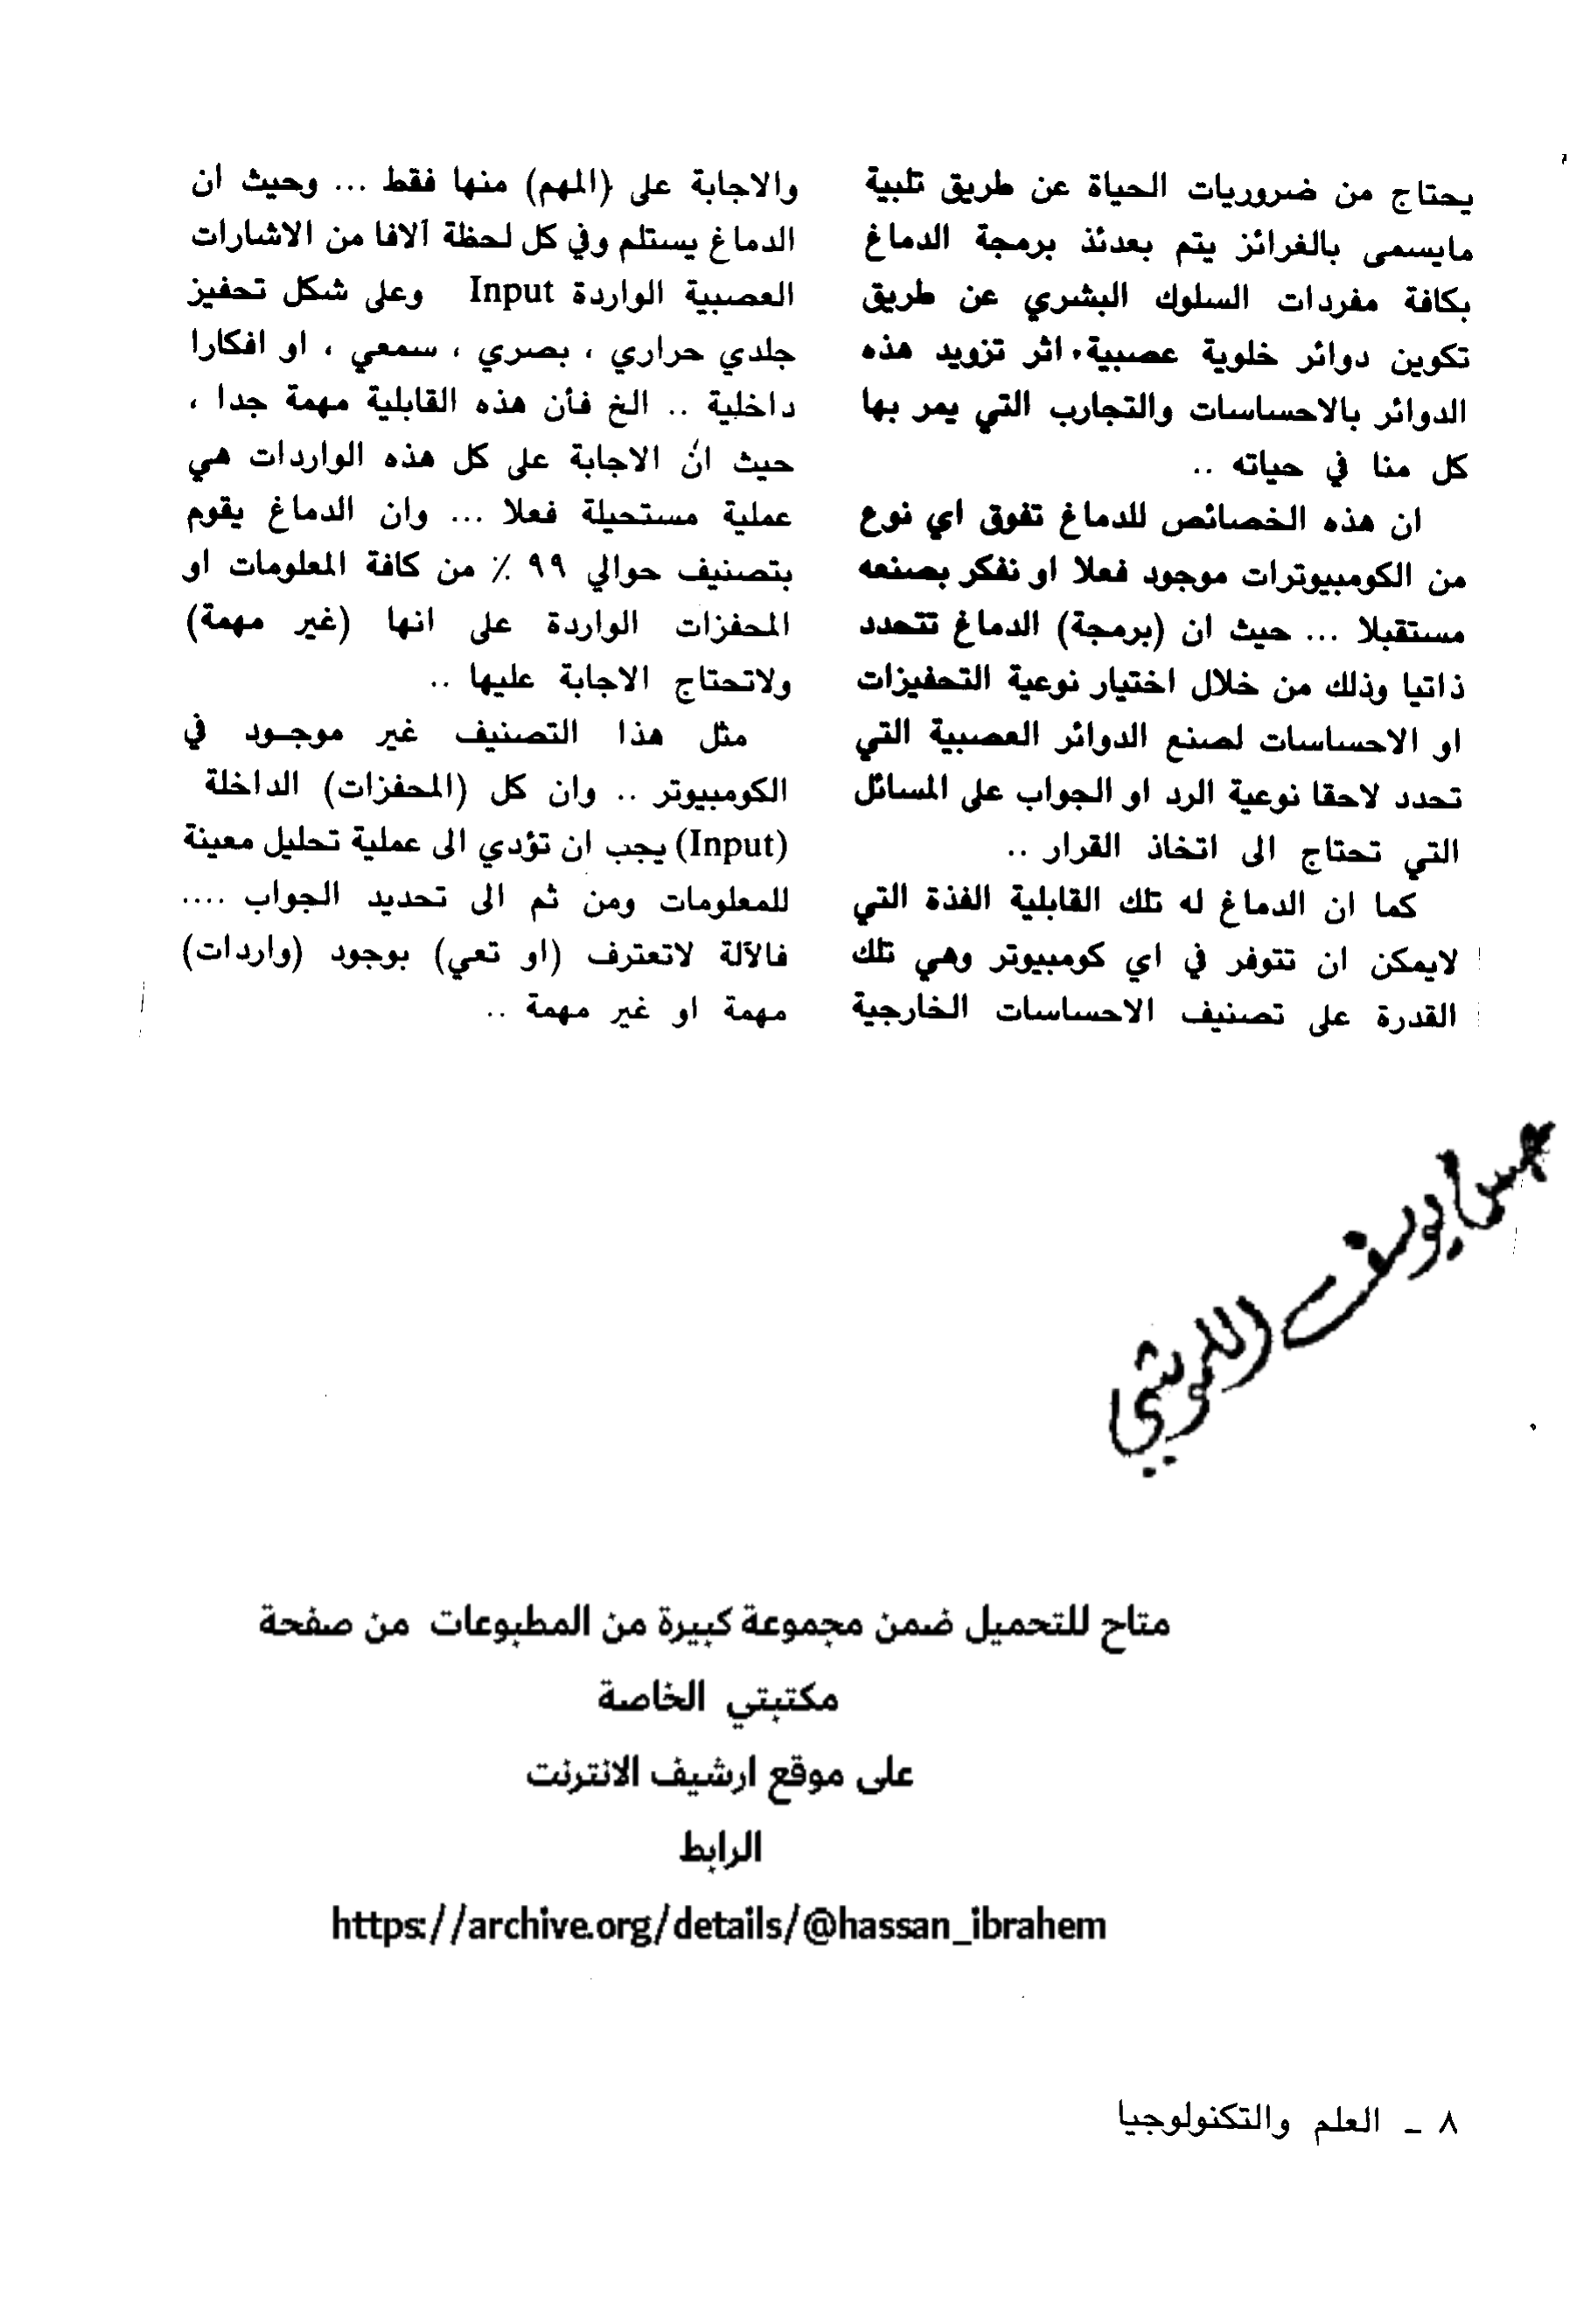 يحتاج من ضروريات الحياة عن طريق تلبية
مايسمى بالغرائز يتم بعدئذ برمجة الدماغ
بكافة مفردات السلوك البشري عن طريق
تكوين دوائر خلوية عصبية، اثر تزويد هذه
الدوائر بالاحساسات والتجارب التي يمر بها
كل منا في حياته ..
ان هذه الخصائص للدماغ تفوق اي نوع
من الكومبيوترات موجود فعلا او نفكر بصنعه
مستقبلا ... حيث ان (برمجة) الدماغ تتحدد
ذاتيا وذلك من خلال اختيار نوعية التحفيزات
او الاحساسات لصنع الدوائر العصبية التي
تحدد لاحقا نوعية الرد او الجواب على المسائل
التي تحتاج الى اتخاذ القرار ..
كما ان الدماغ له تلك القابلية الفذة التي
لايمكن ان تتوفر في اي كومبيوتر وهي تلك
القدرة على تصنيف الاحساسات الخارجية
والاجابة على (المهم) منها فقط ... وحيث ان
الدماغ يستلم وفي كل لحظة آلافا من الاشارات
العصبية الواردة Input وعلى شكل تحفيز
جلدي حراري ، بصري ، سمعي ، او افكارا
داخلية .. الخ فأن هذه القابلية مهمة جدا ،
حيث انّ الاجابة على كل هذه الواردات هي
عملية مستحيلة فعلا ... وان الدماغ يقوم
بتصنيف حوالي ٩٩ ٪ من كافة المعلومات او
المحفزات الواردة على انها (غير مهمة)
ولاتحتاج الاجابة عليها ..
مثل هذا التصنيف غير موجود في
الكومبيوتر .. وان كل (المحفزات) الداخلة
(Input) يجب ان تؤدي الى عملية تحليل معينة
للمعلومات ومن ثم الى تحديد الجواب ....
فالآلة لاتعترف (او تعي) بوجود (واردات)
مهمة او غير مهمة ..
يوسف
متاح للتحميل ضمن مجموعة كبيرة من المطبوعات من صفحة
مكتبتي الخاصة
على موقع ارشيف الانترنت
الرابط
https://archive.org/details/@hassan_ibrahem
٨ ـ العلم والتكنولوجيا